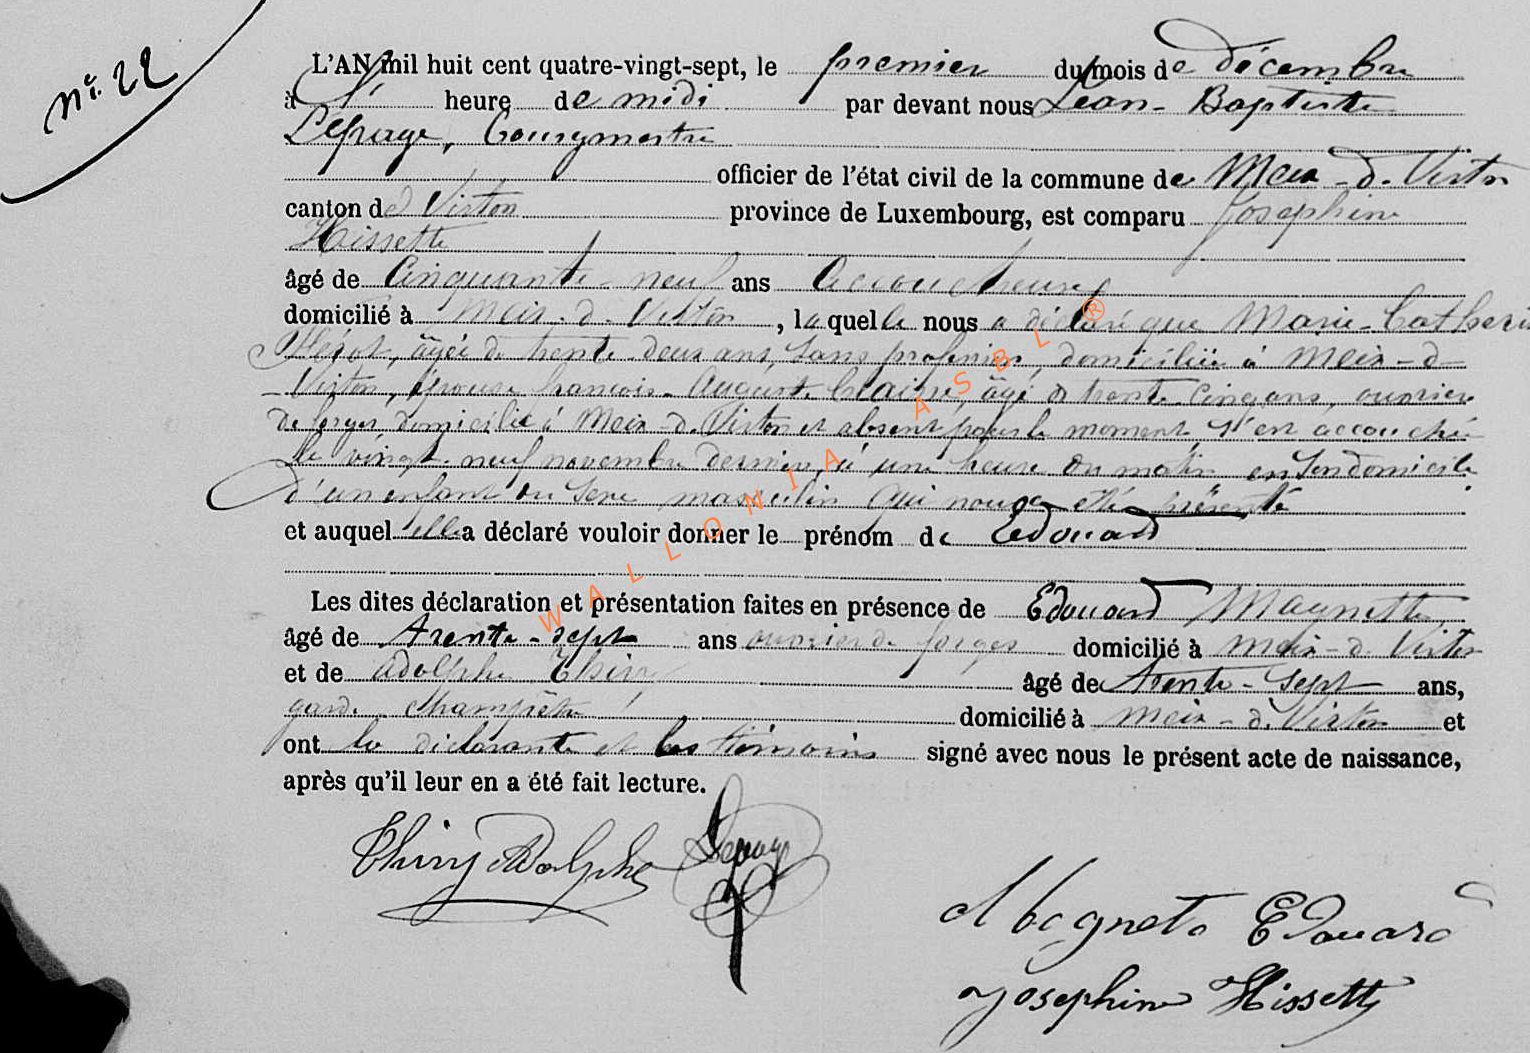 n° 22
L'AN mil huit cent quatre-vingt-sept, le premier du mois de décembre
à heure de midi par devant nous Jean-Baptiste
Lepage, bourgmestre
officier de l'état civil de la commune de Meix-d-Virton
canton de Virton province de Luxembourg, est comparu Josephine
Hissette
âgé de Cinquante-neuf ans accoucheuse
domicilié à Meix-d-Virton, laquelle nous a déclaré que Marie-Catherine
âgée de trente-deux ans, sans profession, domiciliée à Meix-d-
Virton, épouse françois-Auguste âgé de trente-cinq ans, ouvrier
de forges domicilié à Meix-d-Virton et absent pour le moment, s'est accouchée
le vingt-neuf novembre dernier, à une heure du matin en son domicile
d'un enfant du sexe masculin qui nous a été présenté
et auquel elle a déclaré vouloir donner le prénom de Edouard
Les dites déclaration et présentation faites en présence de Edouard Magnette
âgé de trente-sept ans ouvrier de forges domicilié à Meix-d-Virton
et de Adolphe Thiry âgé de trente-sept ans,
garde champêtre domicilié à Meix-d-Virton et
ont la déclarante et les témoins signé avec nous le présent acte de naissance,
après qu'il leur en a été fait lecture.
Thiry Adolphe Lepage
Magnete Edouard
Josephine Hissette
WALLONIA ASBL ®